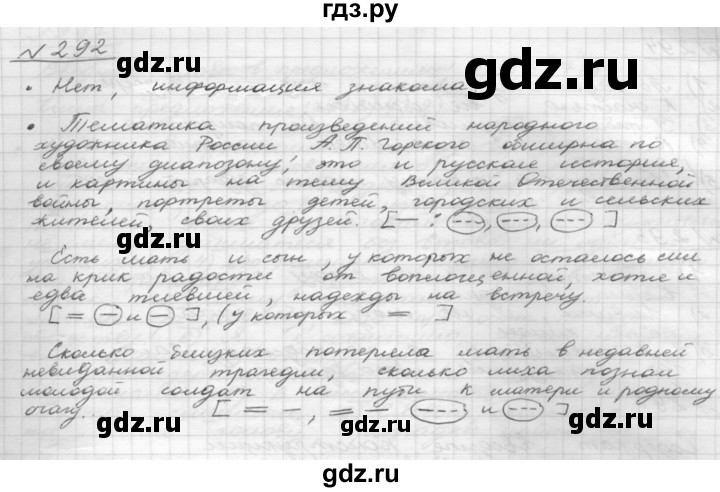 гдз.ру
№ 292
gdz.ru
gdz.ru
gdz.ru
• Нет, информация знакома
• Тематика произведений народного
художника России А.П. Горского обширна по
своему диапозону: это и русская история,
и картины на тему Великой Отечественной
войны, портреты детей, городских и сельских
жителей, своих друзей. [— : (-·-), (-·-), (-·-)]
gdz.ru
gdz.ru
Есть мать и сын, у которых не осталось сил
на крик радости от воплощенной, хотя и
едва тлевшей, надежды на встречу.
[= (—) и (—)], (у которых =]
gdz.ru
gdz.ru
Сколько близких потеряла мать в недавней
невиданной трагедии, сколько лиха познал
молодой солдат на пути к матери и родному
очагу. [= —, = = (---) и (---)]
gdz.ru
gdz.ru
gdz.ru